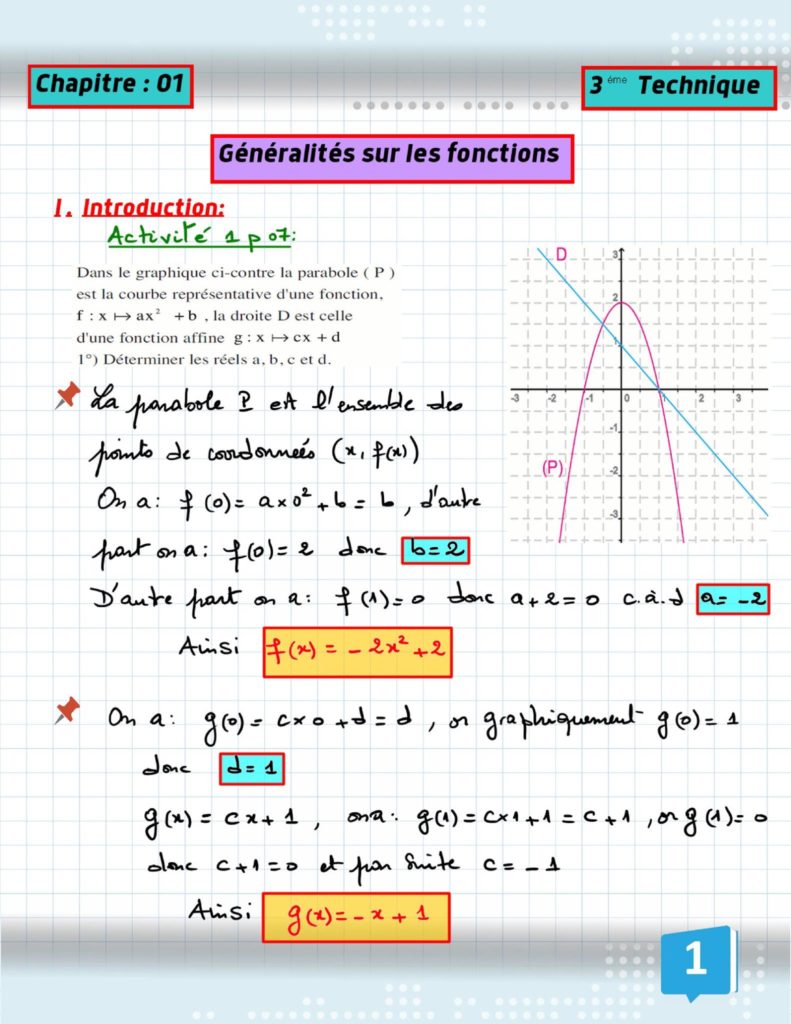 Chapitre : 01
3 ème Technique
Généralités sur les fonctions
I. Introduction:
Activité 1 p 07:
Dans le graphique ci-contre la parabole ( P )
est la courbe représentative d'une fonction,
f : x ↦ ax² + b , la droite D est celle
d'une fonction affine g : x ↦ cx + d
1°) Déterminer les réels a, b, c et d.
D
3
2
1
-3 -2 -1 0 1 2 3
-1
(P) -2
-3
La parabole P est l'ensemble des
points de coordonnées (x, f(x))
On a: f(0) = a×0² + b = b , d'autre
part on a: f(0) = 2 donc b = 2
D'autre part on a: f(1) = 0 donc a + 2 = 0 c.à.d a = -2
Ainsi f(x) = -2x² + 2
On a: g(0) = c×0 + d = d , or graphiquement g(0) = 1
donc d = 1
g(x) = cx + 1 , on a: g(1) = c×1 + 1 = c + 1 , or g(1) = 0
donc c + 1 = 0 et par suite c = -1
Ainsi g(x) = -x + 1
1